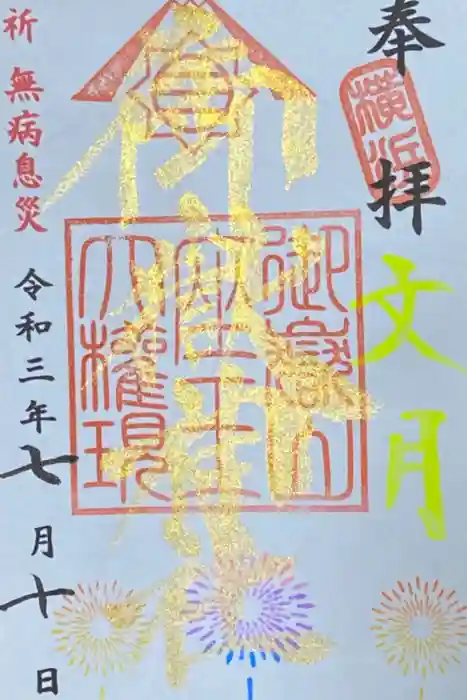 奉拝
横浜
文月
御嶽山
蔵王
大権現
祈 無病息災
令和三年七月十日